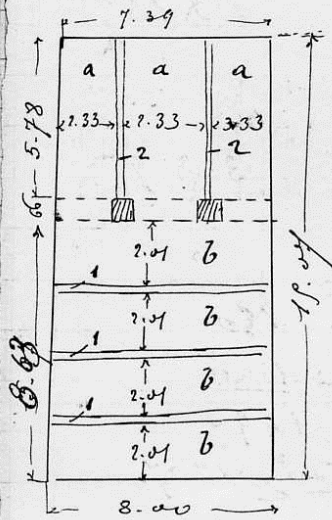 7.39
a a a
2.33 2.33
2 2
5.78
66
2.01 b
1
2.01 b
1
2.01 b
1
2.01 b
8.00